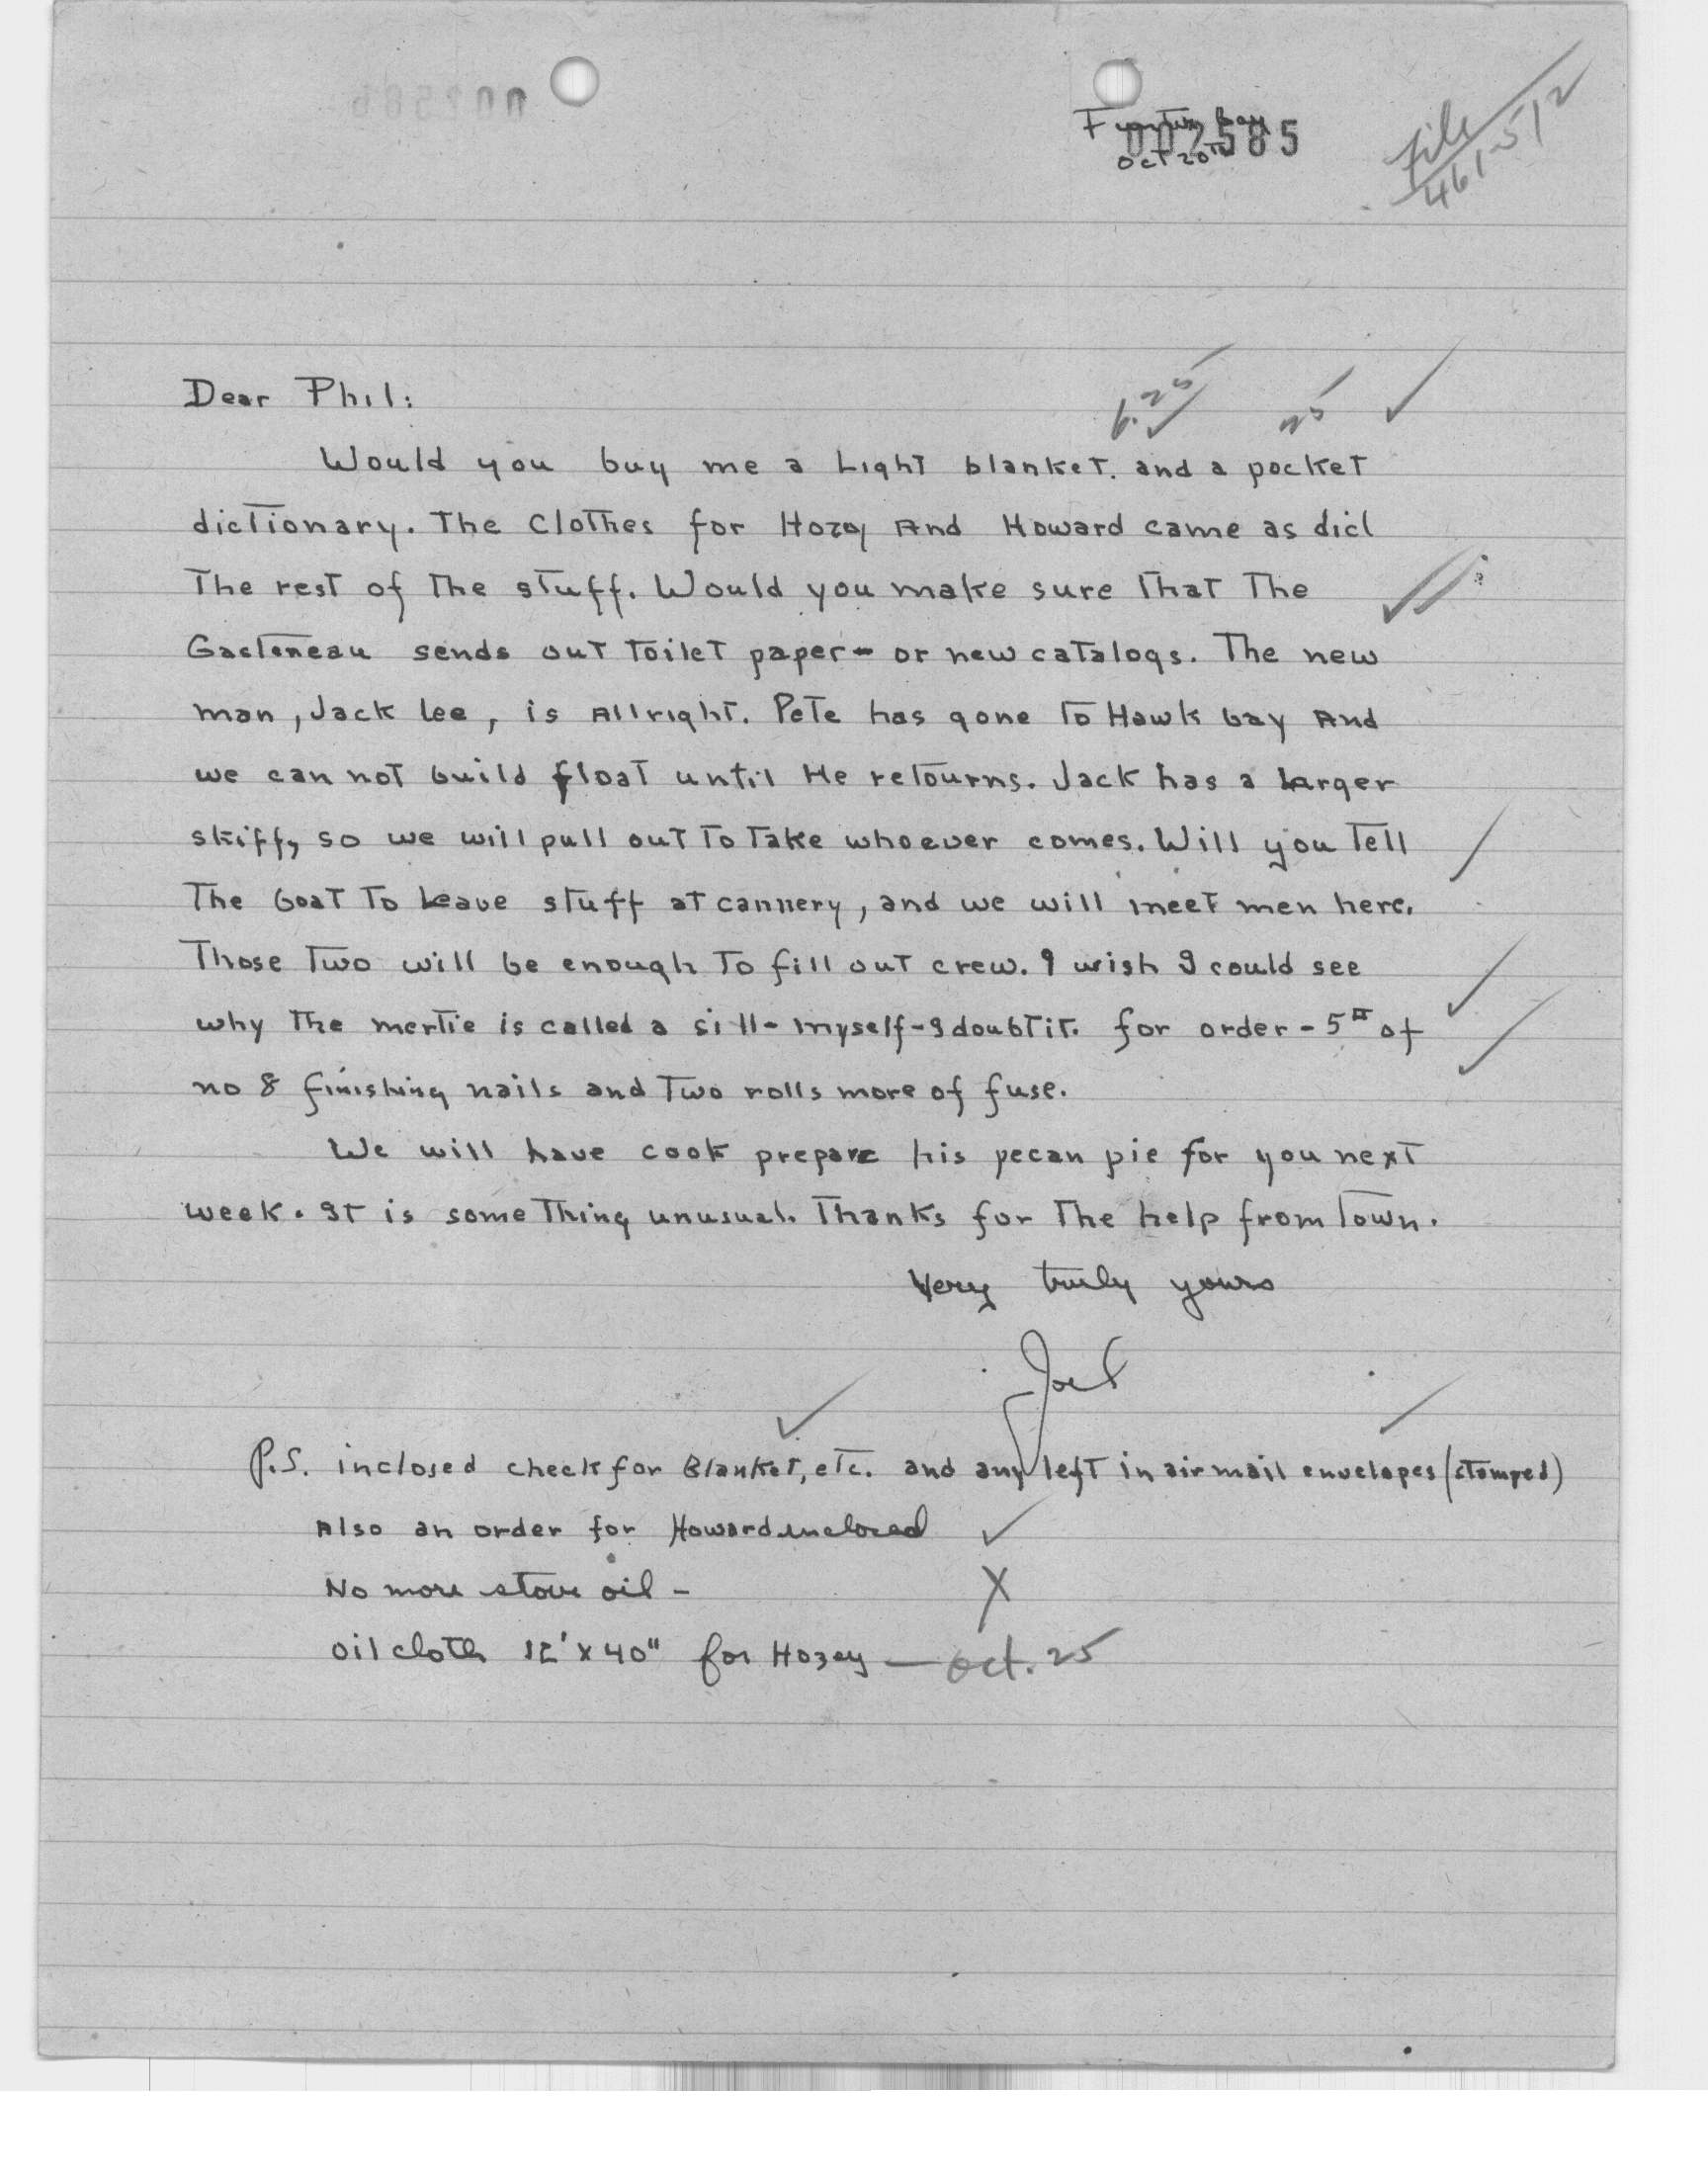 Funter Bay
002585
Oct 20th
File
461-512
Dear Phil:
6.25 25
Would you buy me a Light blanket. and a pocket
dictionary. The Clothes for Hozey And Howard came as did
The rest of the stuff. Would you make sure that The
Gasteneau sends out toilet paper - or new catalogs. The new
man, Jack Lee, is Allright. Pete has gone to Hawk bay And
we can not build float until He retourns. Jack has a Larger
skiff, so we will pull out to take whoever comes. Will you tell
The boat to Leave stuff at cannery, and we will meet men here.
Those two will be enough to fill out crew. I wish I could see
why the mertie is called a sill - myself - I doubt it. for order - 5# of
no 8 finishing nails and two rolls more of fuse.
We will have cook prepare his pecan pie for you next
week. It is something unusual. Thanks for The help from Town.
Very truly yours
Joel
P.S. inclosed check for Blanket, etc. and any left in air mail envelopes (stamped)
Also an order for Howard inclosed
No more stove oil -
X
Oil cloth 12' x 40" for Hozey — Oct. 25